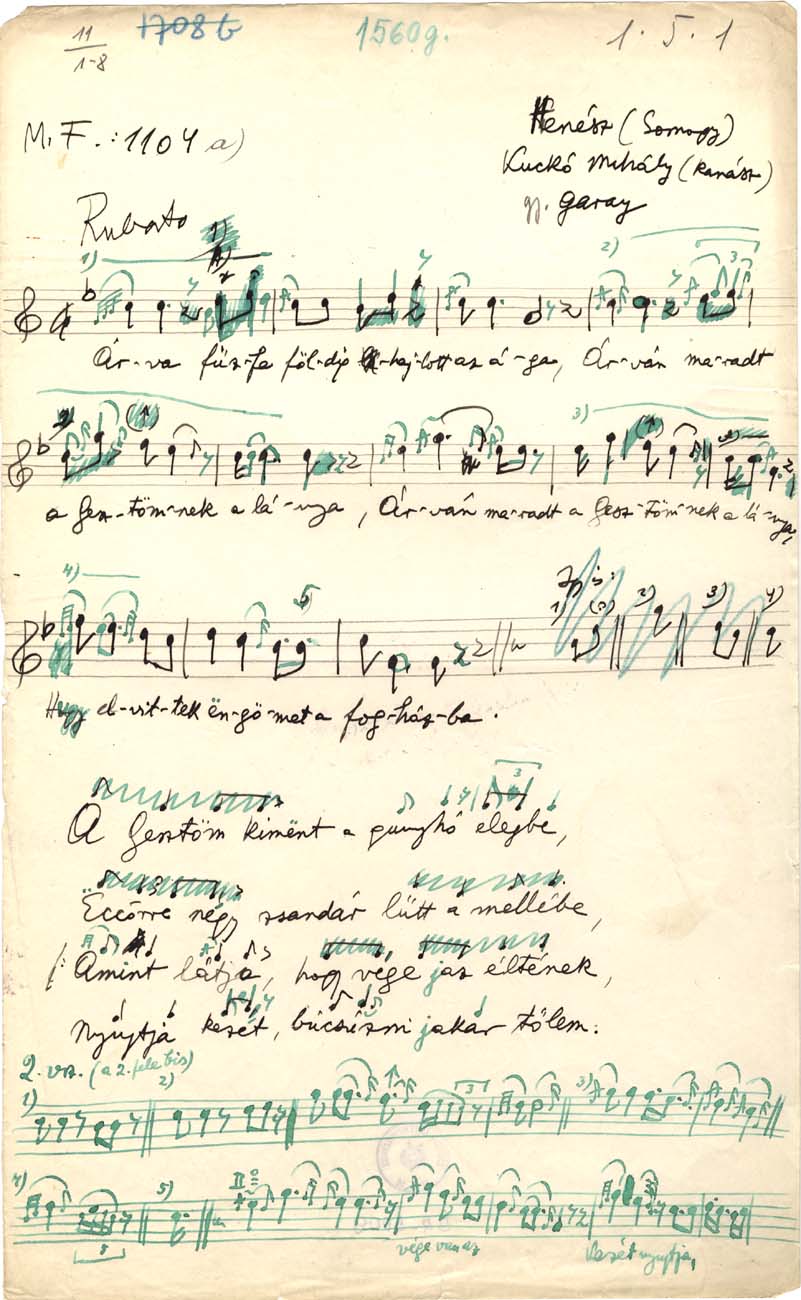 11
1-8
1708 b
1560 g.
1. 5. 1
M. F.: 1104 a)
Henész (Somogy)
Kuckó Mihály (kanász)
gj. Garay
Rubato
1)
2)
3
Ár-va füz-fa föl-dig haj-lott az á-ga, Ár-ván ma-radt
3)
a Gesz-töm-nek a lá-nya, Ár-ván ma-radt a Gesz-töm-nek a lá-nya,
4)
5
1) 2) 3) 4)
Hugy el-vit-tek ën-gö-met a fog-ház-ba.
3
A Gesztöm kimënt a gunyhó elejbe,
Ëccörre négy zsandár lütt a mellébe,
Amint látja, hogy vége jaz éltének,
Nyujtja kezét, búcsúzni jakar tőlem.
2. vsz. (a 2. fele bis)
1)
2)
3
3)
4)
5)
II
vége van az
kezét nyujtja,